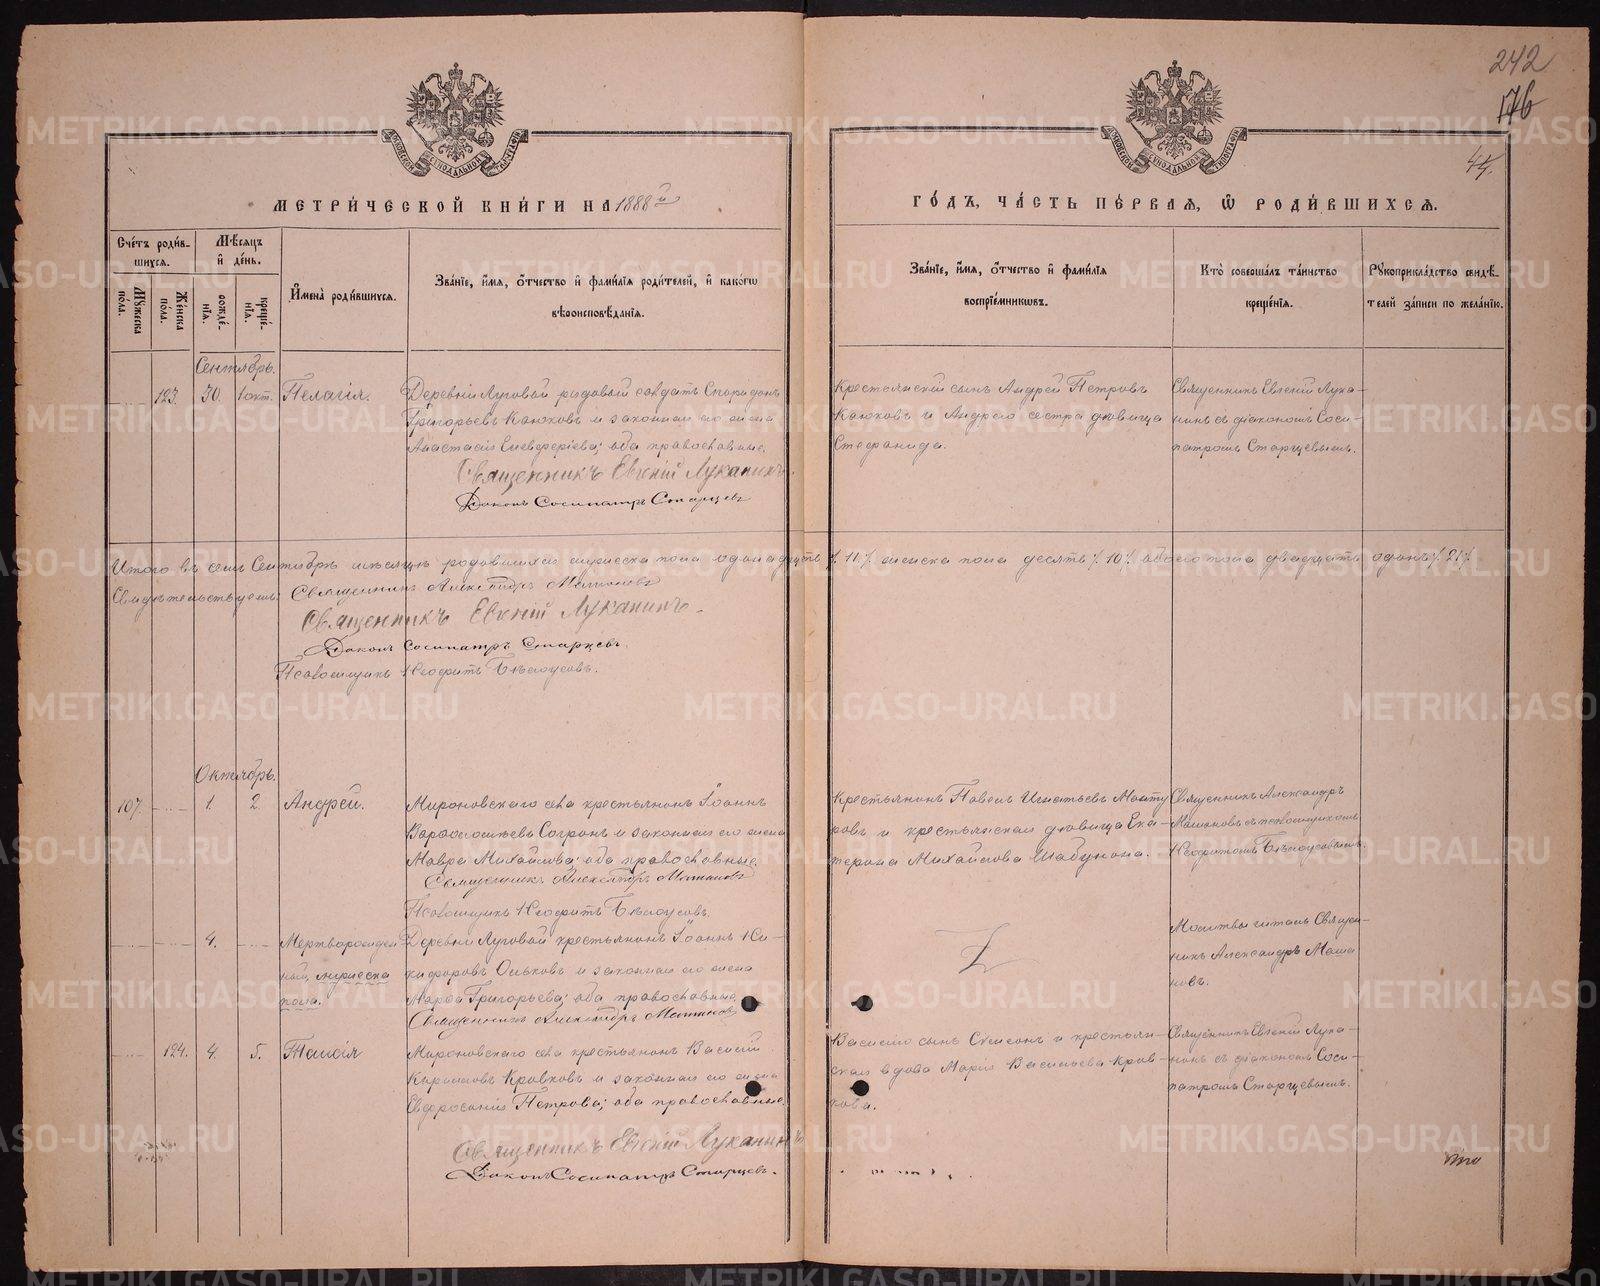 242
176
44.
МЕТРИ́ЧЕСКОЙ КНИ́ГИ НА 1888й
ГО́ДЪ, ЧА́СТЬ ПЕ́РВАЯ, Ѡ РОДИ́ВШИХСЯ.
Сче́тъ роди́в-
шихся.
Мѣ́сяцъ
и де́нь.
Му́жеска
пола.
Же́нска
по́ла.
рожде́-
нїя.
креще́-
нїя.
И҆мена̀ роди́вшихся.
Зва́нїе, и҆́мя, ѻ҆́тчество и҆ фами́лїя роди́телей, и҆ како́гѡ
вѣроисповѣ́данїя.
Зва́нїе, и҆́мя, ѻ҆́тчество и҆ фами́лїя
воспрїе́мникѡвъ.
Кто̀ соверша́лъ та́инство
креще́нїя.
Рꙋкоприкла́дство свидѣ́-
телей за́писи по жела́нїю.
Сентябрь.
123. 30. 1 окт. Пелагія.
Деревни Луговой рядовый солдатъ Спиридонъ
Григорьевъ Каюковъ и законная его жена
Анастасія Елевферіева; оба православные.
Священникъ Евгеній Луканинъ.
Діаконъ Сосипатръ Старцевъ
Крестьянскій сынъ Андрей Петровъ
Каюковъ и Андрею сестра девица
Стефанида.
Священникъ Евгеній Лука-
нинъ съ діакономъ Соси-
патромъ Старцевымъ.
Итого въ семъ Сентябрѣ мѣсяцѣ родившихся мужеска пола одинадцать /11/ женска пола десять /10/ обоего пола двадцать одинъ /21/
Свидѣтельствуемъ: Священникъ Александръ
Священникъ Евгеній Луканинъ.
Діаконъ Сосипатръ Старцевъ.
Псаломщикъ Неофитъ Бѣлоусовъ.
Октябрь.
107. 1. 2. Андрей.
Мироновскаго села крестьянинъ Іоаннъ
Варфоломѣевъ и законная его жена
Мавра Михайлова; оба православные.
Священникъ Александръ
Псаломщикъ Неофитъ Бѣлоусовъ.
Крестьянинъ Павелъ Игнатьевъ
и крестьянская девица Ека-
терина Михайлова Шабунина.
Священникъ Александръ
съ псаломщикомъ
Неофитомъ Бѣлоусовымъ.
4. Мертворожден
ный, мужеска
пола.
Деревни Луговой крестьянинъ Іоаннъ Ни-
кифоровъ и законная его жена
Марфа Григорьева; оба православные.
Священникъ Александръ
Молитвы читалъ Священ-
никъ Александръ
124. 4. 5. Таисія
Мироновскаго села крестьянинъ Василій
Кириловъ и законная его жена
Евфросинія Петрова; оба православные.
Священникъ Евгеній Луканинъ
Діаконъ Сосипатръ Старцевъ.
Василію сынъ Симеонъ и крестьян-
ская вдова Марія Васильева
Священникъ Евгеній Лука-
нинъ съ діакономъ Соси-
патромъ Старцевымъ.
METRIKI.GASO-URAL.RU